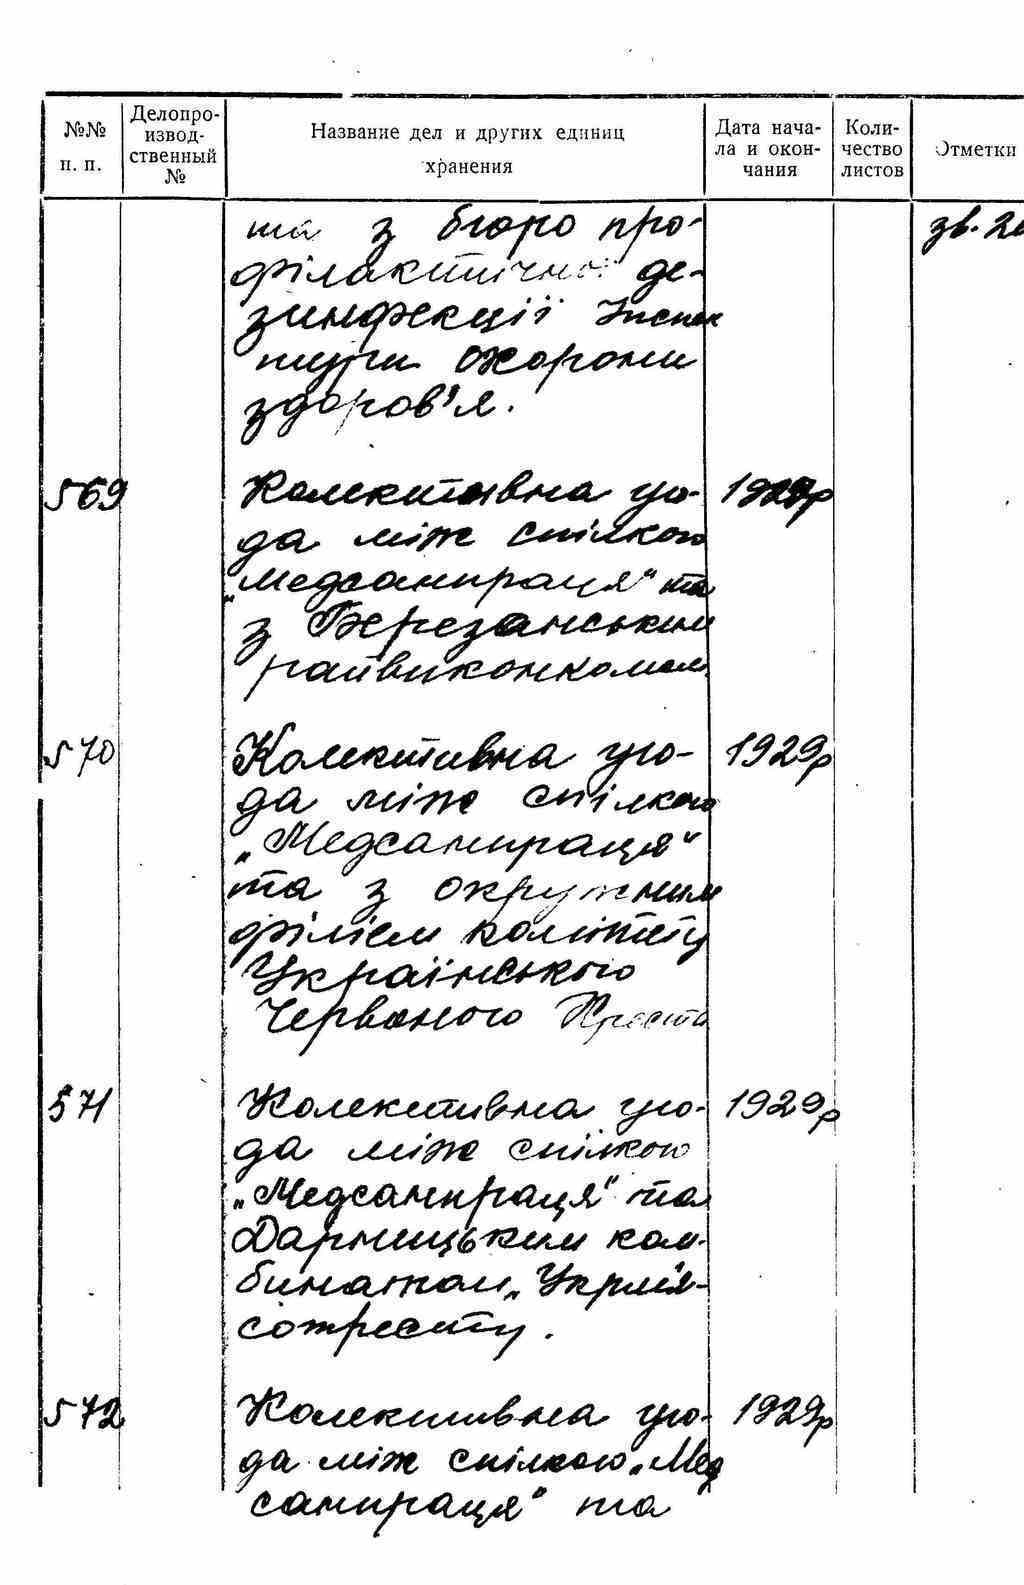 №№ п. п.
Делопро-
извод-
ственный
№
Название дел и других единиц
хранения
Дата нача-
ла и окон-
чания
Коли-
чество
листов
Отметки
та з бюро про-
філактичної де-
зинфекції Інспек
тури охорони
здоров'я.
зв. 2
569
Колективна уго-
1929р
да між спілкою
„Медсанпраця" та
з Березанським
райвиконкомом.
570
Колективна уго-
1929р
да між спілкою
„Медсанпраця"
та з окружним
філієм комітету
Українського
Червоного Хреста
571
Колективна уго-
1929р
да між спілкою
„Медсанпраця" та
Дарницьким ком-
бинатом „Укрмʼя-
сотресту.
572
Колективна уго-
1929р
да між спілкою „Мед
санпраця" та